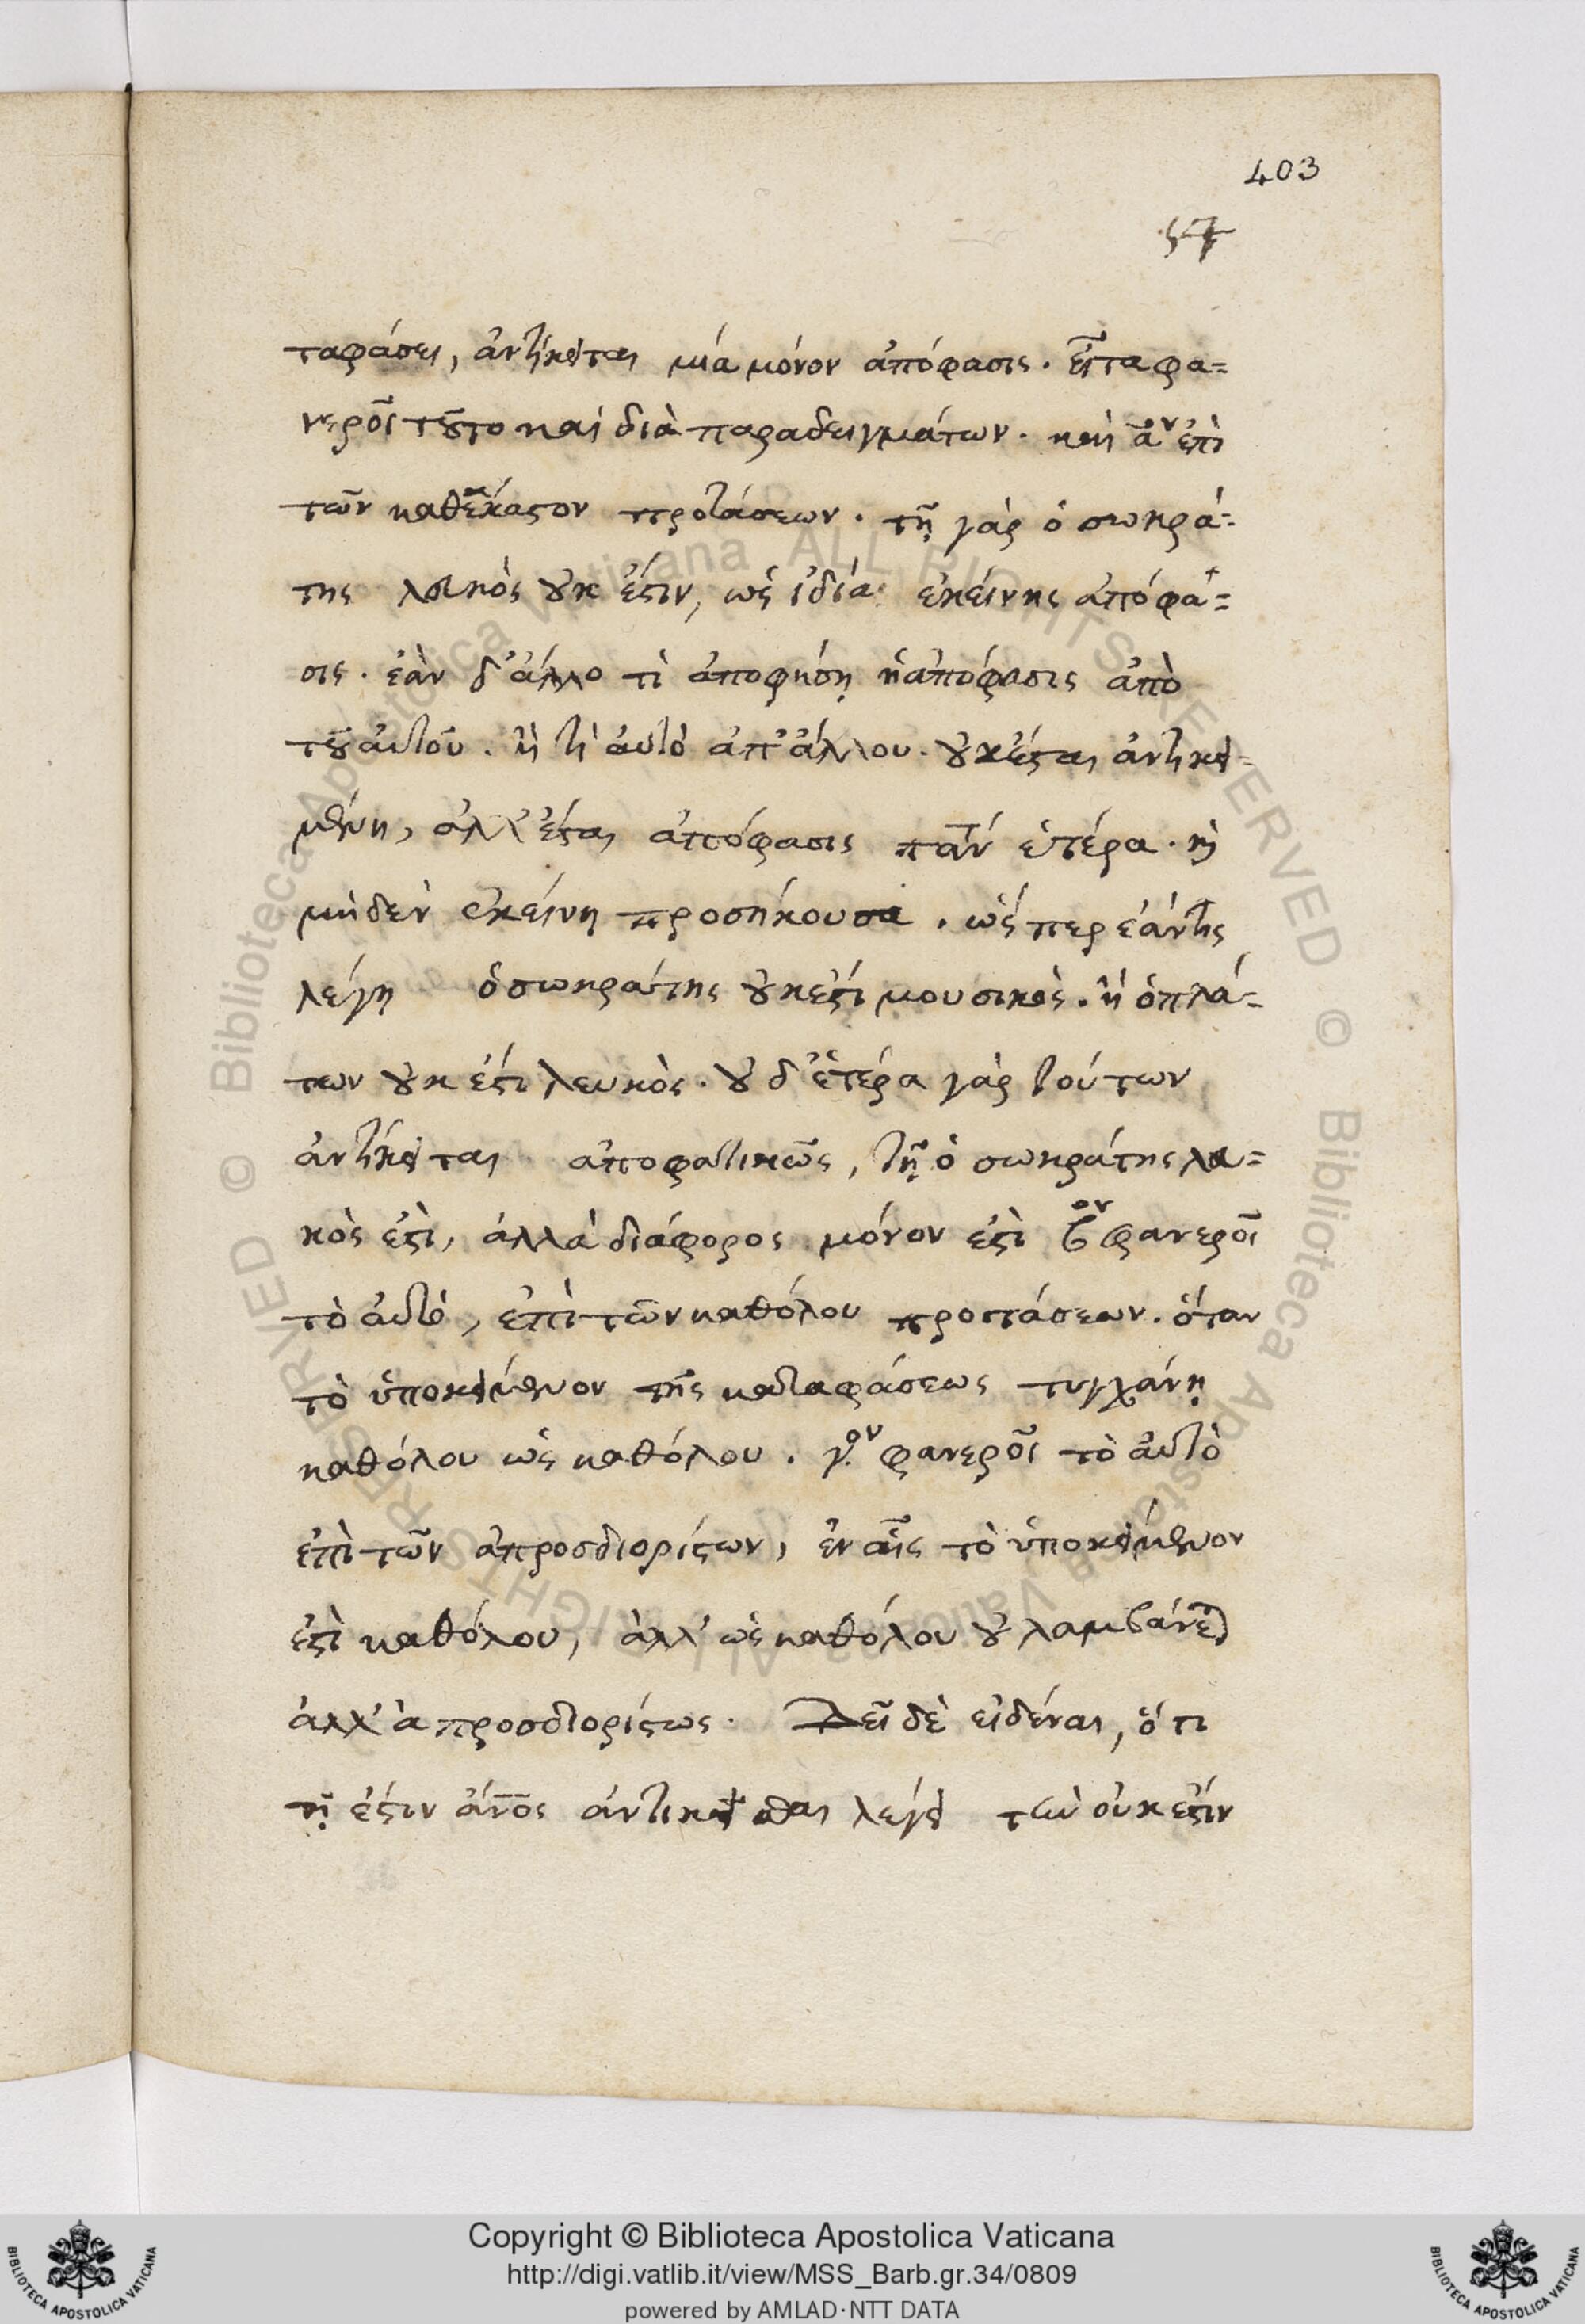 403
57
ταφάσει, ἀντίκειται μία μόνον ἀπόφασις. εἶτα φα=
νεροῖ τοῦτο καὶ διὰ παραδειγμάτων. καὶ αον ἐπὶ
τῶν καθέκαστον προτάσεων. τῇ γὰρ ὁ σωκρά=
της λευκὸς οὐκ ἔστιν, ὡς ἰδία ἐκείνης ἀπόφα=
σις. ἐὰν δ' ἄλλο τὶ ἀποφήσῃ ἡ ἀπόφασις ἀπὸ
τοῦ αὐτοῦ. ἢ τὶ αὐτὸ ἀπ' ἄλλου. οὐκ ἔσται ἀντικει=
μένη, ἀλλ' ἔσται ἀπόφασις ἑτέρα. καὶ
μηδὲν ἐκείνη προσήκουσα. ὥσπερ ἐάν τις
λέγῃ ὁ σωκράτης οὐκ ἐστὶ μουσικὸς. ἢ ὁ πλά=
των οὐκ ἐστὶ λευκὸς. οὐδ' ἑτέρα γὰρ τούτων
ἀντίκειται ἀποφατικῶς, τῇ ὁ σωκράτης λευ=
κὸς ἐστὶ, ἀλλὰ διάφορος μόνον ἐστὶ βον φανεροῖ
τὸ αὐτὸ, ἐπὶ τῶν καθόλου προτάσεων. ὅταν
τὸ ὑποκείμενον τῆς καταφάσεως τυγχάνῃ
καθόλου ὡς καθόλου. γον φανεροῖ τὸ αὐτὸ
ἐπὶ τῶν ἀπροσδιορίστων, ἐν αἷς τὸ ὑποκείμενον
ἐστὶ καθόλου, ἀλλ' ὡς καθόλου οὐ λαμβάνεται
ἀλλ' ἀπροσδιορίστως. Δεῖ δὲ εἰδέναι, ὅτι
τῇ ἔστιν ἄνος ἀντικεῖσθαι λέγει τὴν οὐκ ἔστιν
© Biblioteca Apostolica Vaticana ALL RIGHTS RESERVED © Biblioteca Apostolica Vaticana ALL RIGHTS RESERVED
Copyright © Biblioteca Apostolica Vaticana
http://digi.vatlib.it/view/MSS_Barb.gr.34/0809
powered by AMLAD·NTT DATA
BIBLIOTECA APOSTOLICA VATICANA
BIBLIOTECA APOSTOLICA VATICANA